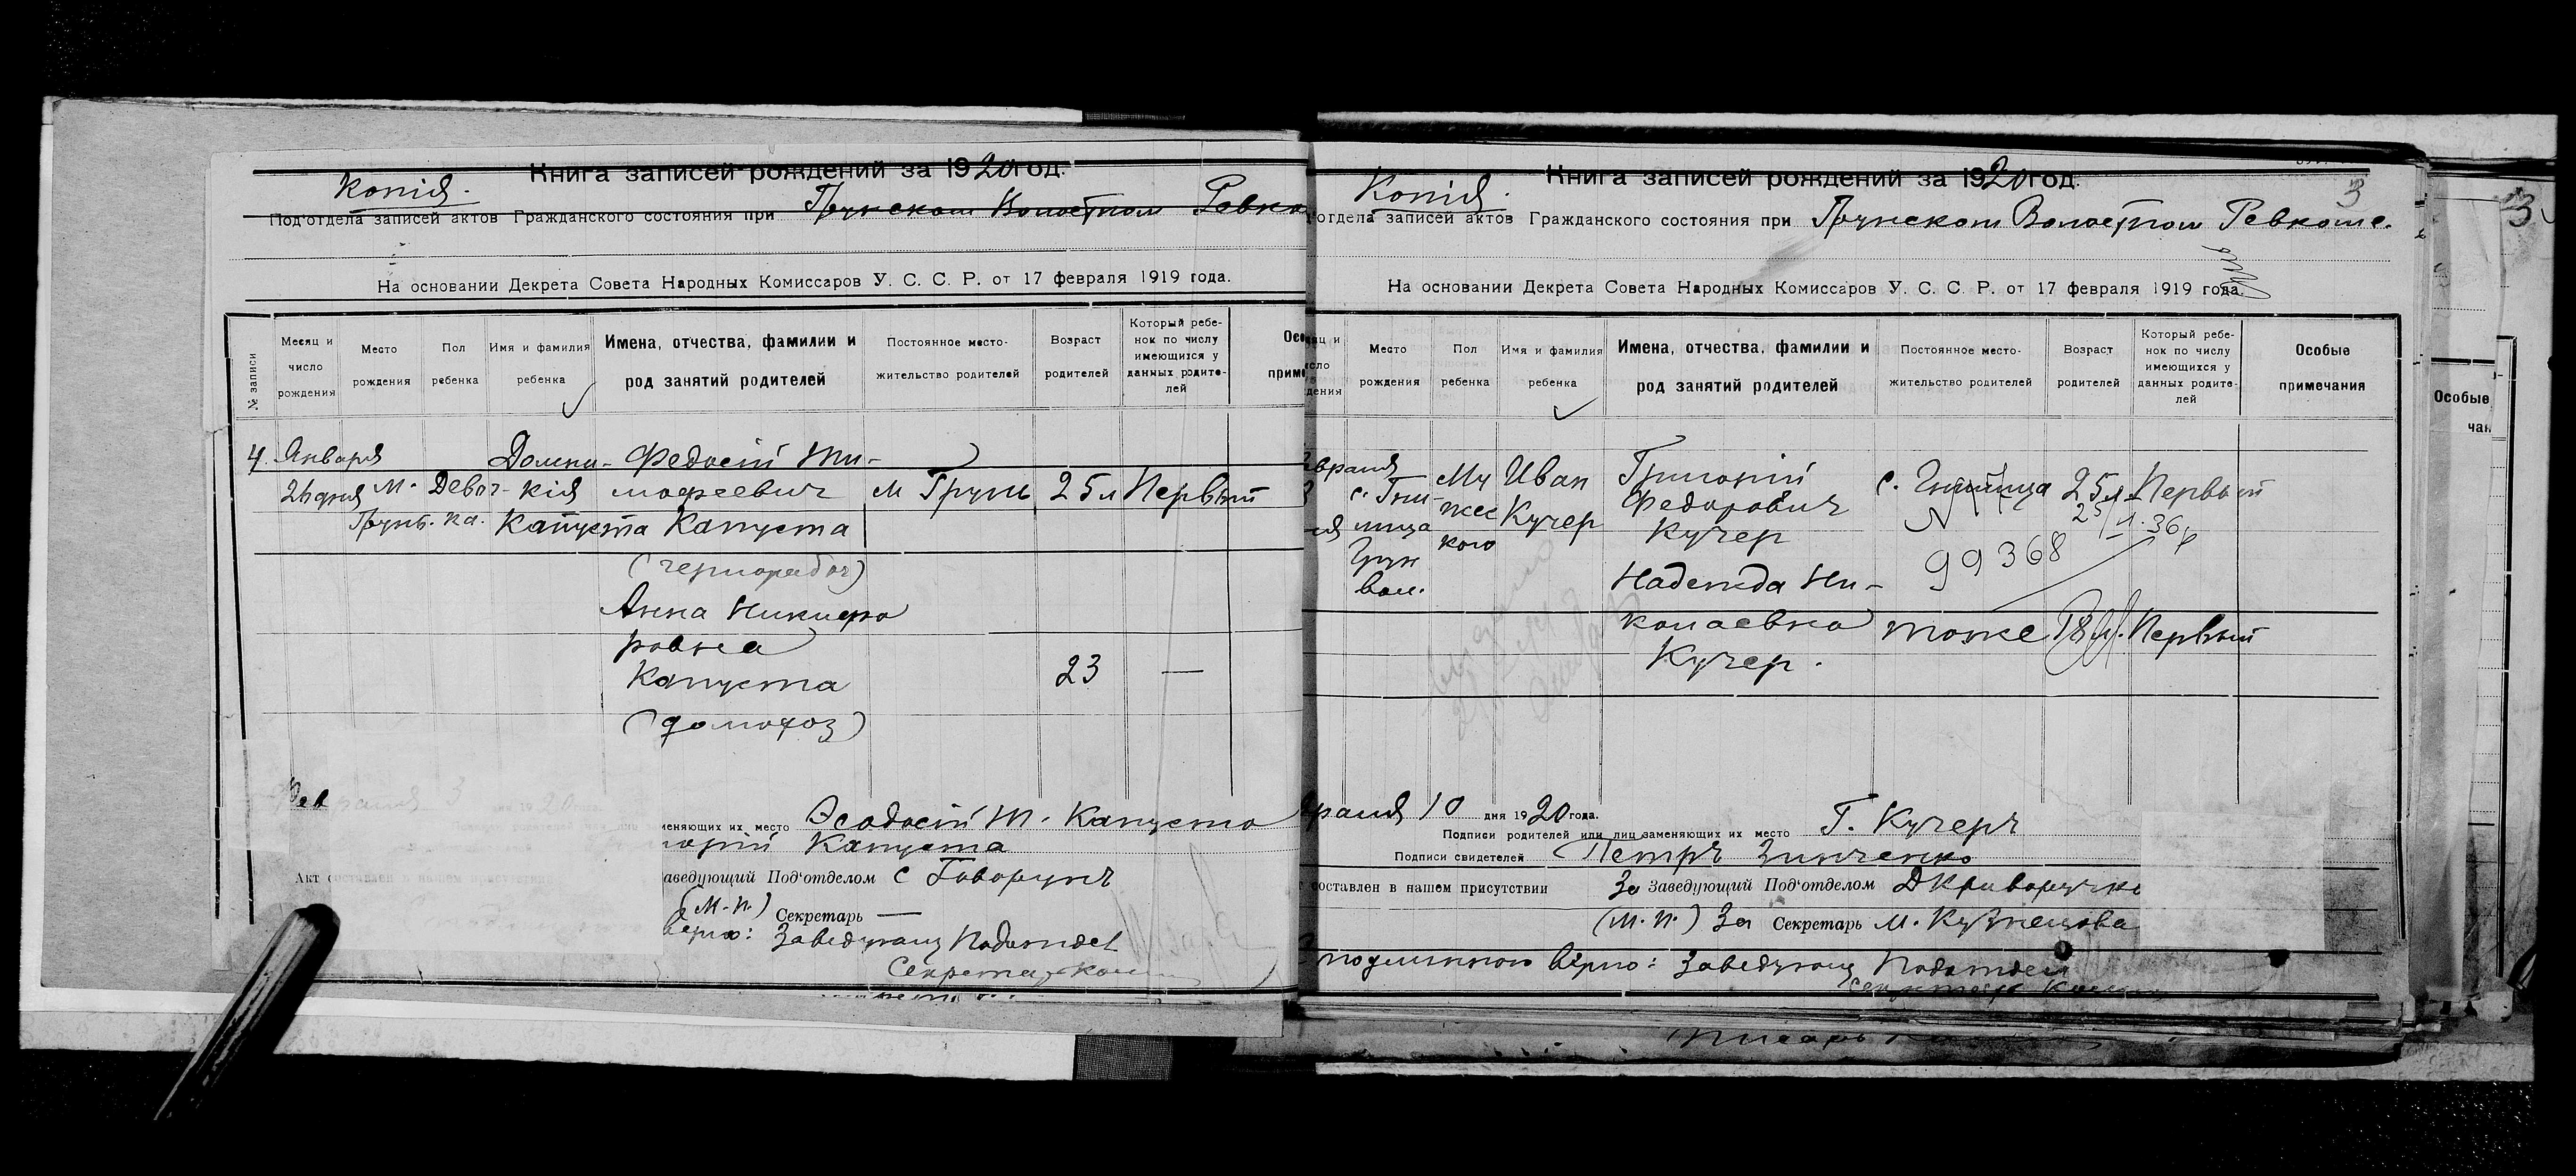 Книга записей рождений за 1920 год.
Копія.
Под'отдела записей актов Гражданского состояния при Грунском Волостном Ревко
На основании Декрета Совета Народных Комиссаров У. С. С. Р. от 17 февраля 1919 года.
№ записи
Месяц и число рождения
Место рождения
Пол ребенка
Имя и фамилия ребенка
Имена, отчества, фамилии и род занятий родителей
Постоянное место-жительство родителей
Возраст родителей
Который ребе-нок по числу имеющихся у данных родите-лей
Осо
прим
4. Января Домни- Федосій Ти-
26 дня м. Девоч- кія мофеевич м Грунь 25 л Первый
Грунь. ка. Капуста Капуста
(чернорабоч)
Анна Никифо
ровна
Капуста 23 —
(домохоз)
Февраля 3 дня 1920
меняющих их место Феодосій Т. Капуста
Капуста
Акт составлен в нашем присутствии
аведующий Под'отделом С Говорунъ
(М.п.) Секретарь —
верно: Заведующ Подотдел
Секретар
Книга записей рождений за 1920 год.
3
Копія.
отдела записей актов Гражданского состояния при Грунском Волостном Ревкоме.
На основании Декрета Совета Народных Комиссаров У. С. С. Р. от 17 февраля 1919 года.
Место рождения
Пол ребенка
Имя и фамилия ребенка
Имена, отчества, фамилии и род занятий родителей
Постоянное место-жительство родителей
Возраст родителей
Который ребе-нок по числу имеющихся у данных родите-лей
Особые примечания
враля Му Иван Григорій
с. Гни- жес Федорович с. Гнилица 25 л Первый
лица кого Кучер Кучер
Грун
вол.
99368
Надежда Ни-
колаевна тоже 18 л. Первый
Кучер.
враля 10 дня 1920 года.
Подписи родителей или лиц заменяющих их место Г. Кучеръ
Подписи свидетелей Петръ Зинченко
составлен в нашем присутствии За Заведующий Под'отделом Д Криворучко
(М.п.) За Секретарь М. Кузнецова
подлинного верно: Заведующ Подотдел
Секретарь
3
Особые